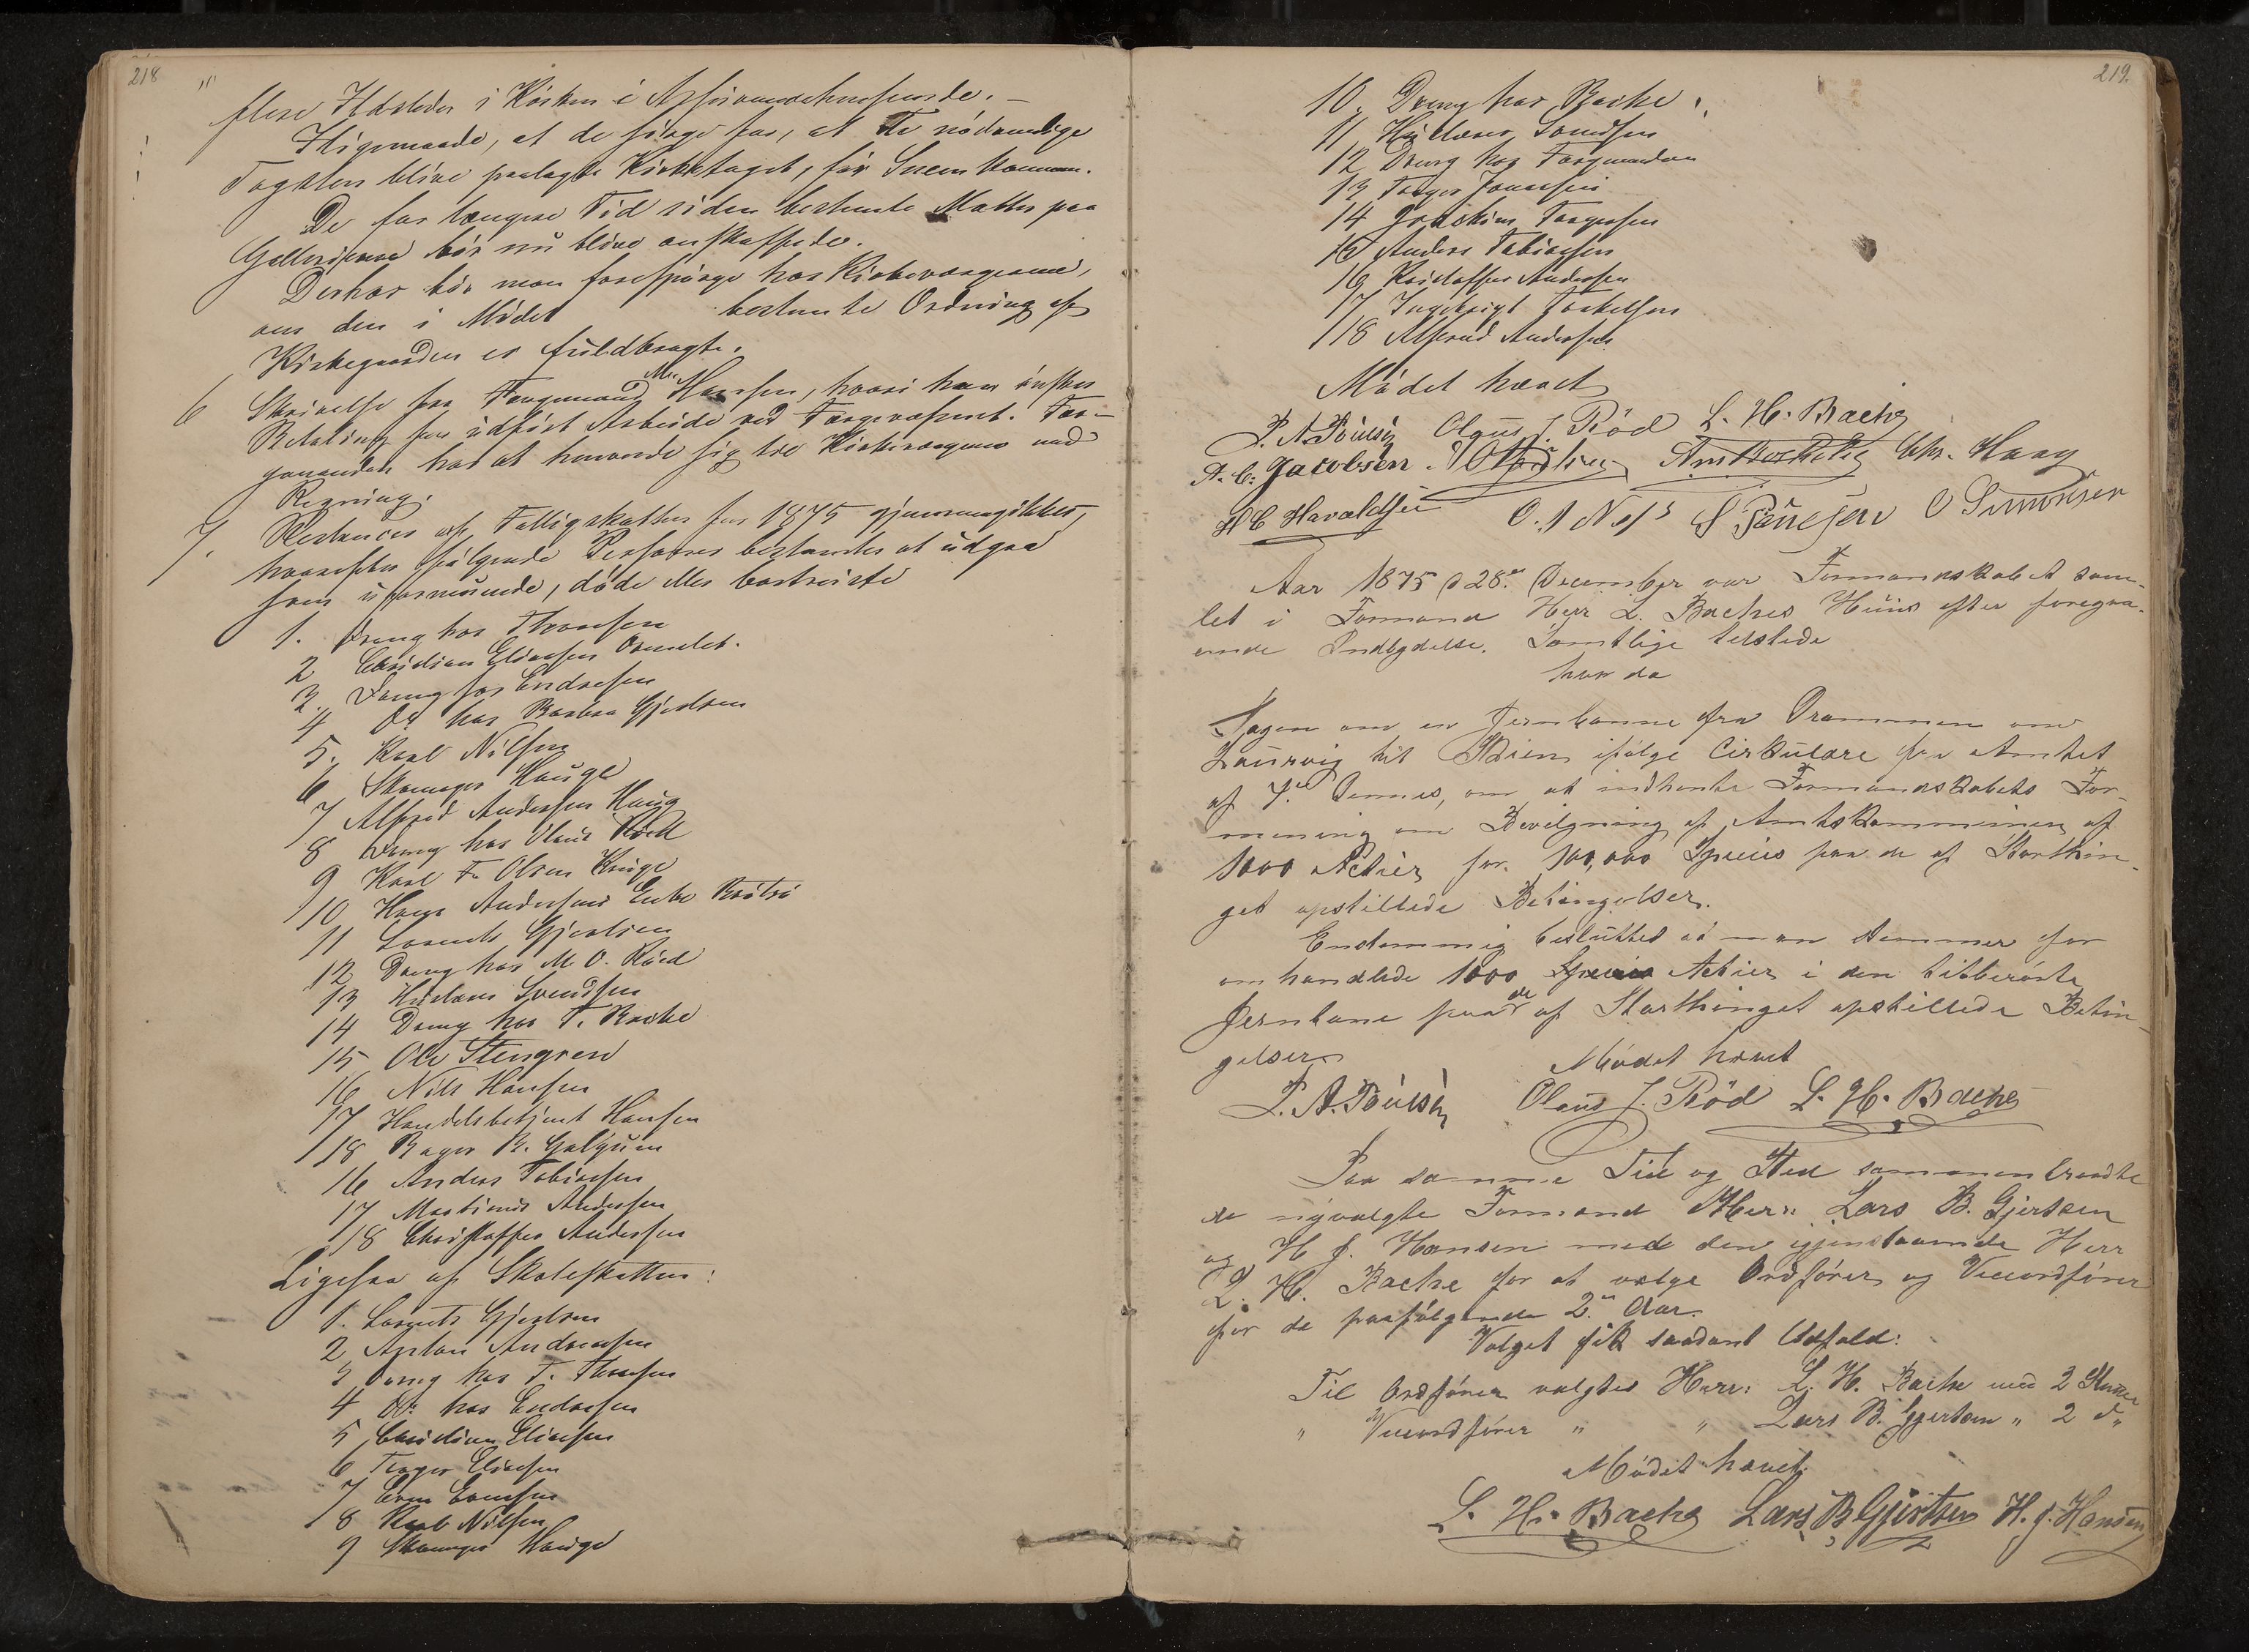 218
flere Ildsteder i Kirken i
Iligemaade, at de sørge for, at de nödvendige
Tagsten blive paalagte Kirketaget, för Sneen kommer.
De for længere Tid siden bestemte Matter paa
Gallerierne bör nu blive anskaffede.
Derhos bör man forespörge hos Kirkeværgerne,
om den i Mödet bestemte Ordning af
Kirkegaarden er fuldbragte.
6 Skrivelse fra Fangemand M. Hansen, hvori han önsker
Betaling for udfört Arbeide ved
har at henvende sig til Kirkeværgerne med
Regning.
7. Restancer af Fattigskatten for 1875 gjennemgikkes,
hvorefter fölgende Personer bestemtes at udgaa
som uformuende, döde eller bortreiste
1. Dreng hos Thomsen
2 Christian Eliassen Ormelet.
3. Dreng hos Endresen
4 Do hos Gjertsen
5. Karl Nilsen
6 Skomager Hauge
7 Alfred Andersen Haug
8 Dreng hos Olaus Röed
9 Karl F. Olsen Kruge
10 Hans Andersens Enke
11 Lorents Gjertsen
12 Dreng hos M. O. Röed
13 Svendsen
14 Dreng hos T. Bache
15 Ole Stengren
16 Nils Hansen
17 Handelsbetjent Hansen
18 Bager B.
16 Anders Tobiasen
17 Martinus Andersen
18 Christoffer Andersen
Ligesaa af Skoleskatten:
1. Lorents Gjertsen
2 Anton Andreasen
3 Dreng hos T. Thomsen
4 Do hos Endresen
5 Christian Eliasen
6 Eliasen
7 Even Evensen
8 Karl Nilsen
9 Skomager Hauge
219.
10. Dreng hos Bache
11 Svendsen
12 Dreng hos
13 Torger Joensen
14 Joackim Torgersen
15 Anders Tobiasen
16 Kristoffer Andersen
17 Ingebrigt Torkelsen
18 Alfred Andersen
Mödet hævet
P. A. Poulsen Olaus J. Röd L. H. Bache
A. C. Jacobsen Chr. Haag
H C Havaldsen O. Simonsen
Aar 1875 d 28de December var Formandskabet sam-
let i Formand Herr L. Baches Huus efter foregaa-
ende Indbydelse. Samtlige tilstede
hvor da
Sagen om en Jernbanne fra Drammen over
Laurvig til Skien ifölge Cirkulære fra Amtet
af 7de Dennes, om at indhente Formandskabets For-
mening om Bevilgning af Amtskommunen af
1000 Actier for 100,000 Species paa de af Storthin-
get opstillede Betingelser.
Enstemmig besluttet at man stemmer for
omhandlede 1000 Actier i den titberörte
Jernbane paa de af Storthinget opstillede Betin-
gelser
Mödet hævet
P. A. Poulsen Olaus J. Röd L. H. Bache
Paa samme Tid og Sted sammentraadte
de nyvalgte Formænd Herr: Lars B. Gjertsen
og H J. Hansen med den igjenstaaende Herr
L. H. Bache for at vælge Ordförer og Viceordförer
for de paafölgende 2de Aar.
Valget fik saadant Udfald:
Til Ordförer valgtes Herr: L. H. Bache med 2 Stemmer
" Viceordförer " " Lars B. Gjertsen " 2 do
Mödet hævet
L. H. Bache Lars B Gjertsen H. J. Hansen